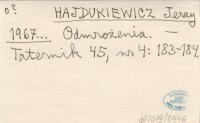 o? HAJDUKIEWICZ Jerzy
1967... Odmrożenia. —
Taternik 45, nr 4: 183-184.